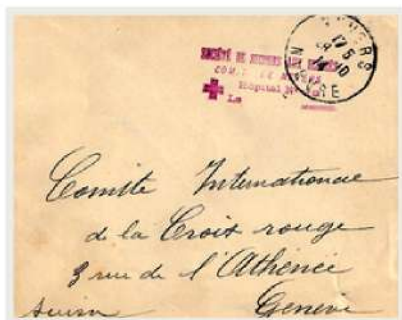 SOCIÉTÉ DE SECOURS AUX BLESSÉS
COMITÉ DE NEVERS
Hôpital N°
Le
NEVERS
17 5
14 10
NIEVRE
Comite Internationae
de la Croix rouge
3 rue de l'Athénée
Suisse Geneve